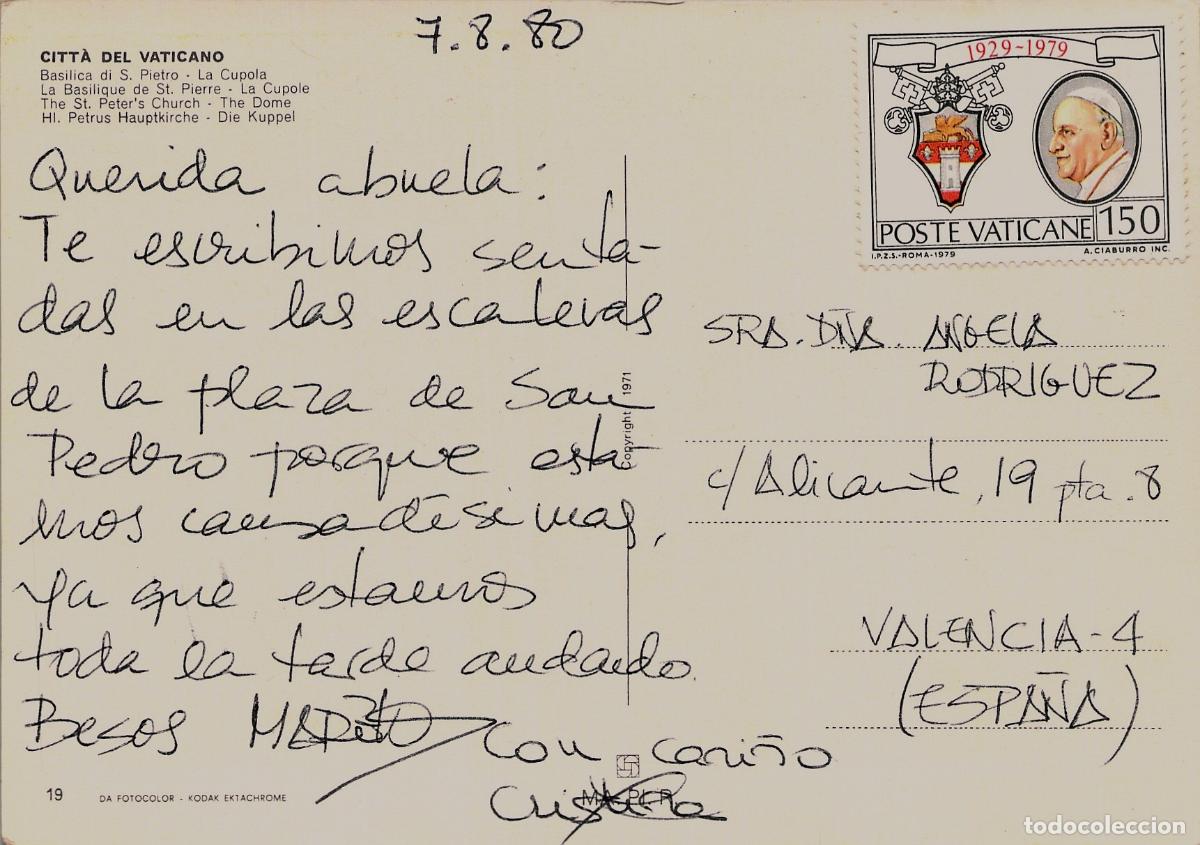 7.8.80
CITTÀ DEL VATICANO
Basilica di S. Pietro - La Cupola
La Basilique de St. Pierre - La Cupole
The St. Peter's Church - The Dome
Hl. Petrus Hauptkirche - Die Kuppel
1929-1979
POSTE VATICANE 150
I.P.Z.S.-ROMA-1979 A. CIABURRO INC.
Querida abuela:
Te escribimos senta-
das en las escaleras
de la plaza de San
Pedro porque esta-
mos cansadísimas,
ya que estamos
toda la tarde andando.
Besos
Con cariño
Cristina
Copyright 1971
SRA. DÑA. ANGELA
RODRIGUEZ
c/ Alicante, 19 pta. 8
VALENCIA-4
(ESPAÑA)
19 DA FOTOCOLOR - KODAK EKTACHROME
todocoleccion